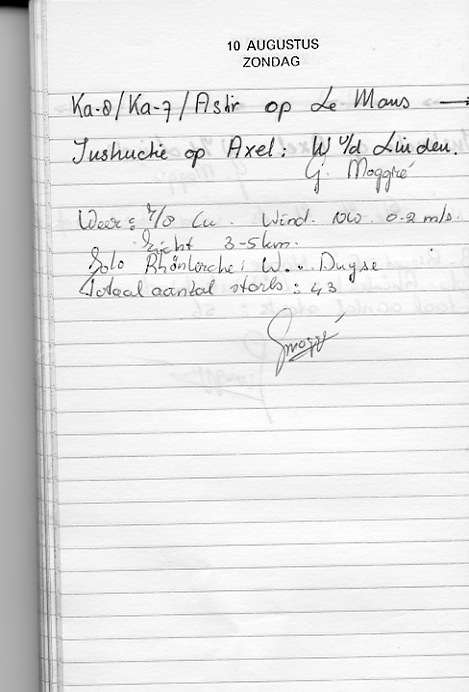 10 AUGUSTUS
ZONDAG
Ka-8/Ka-7/Astir op Le Mans →
Instructie op Axel: W v/d Linden.
G. Moggré
Weer: 7/8 Cu. Wind. NW 0-2 m/s.
Zicht 3-5km.
Solo Rhönlerche: W. v. Duyse
Totaal aantal starts: 43